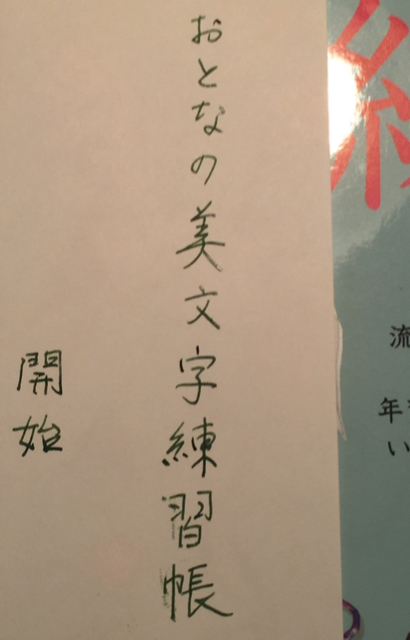 おとなの美文字練習帳
開始
流
年
い